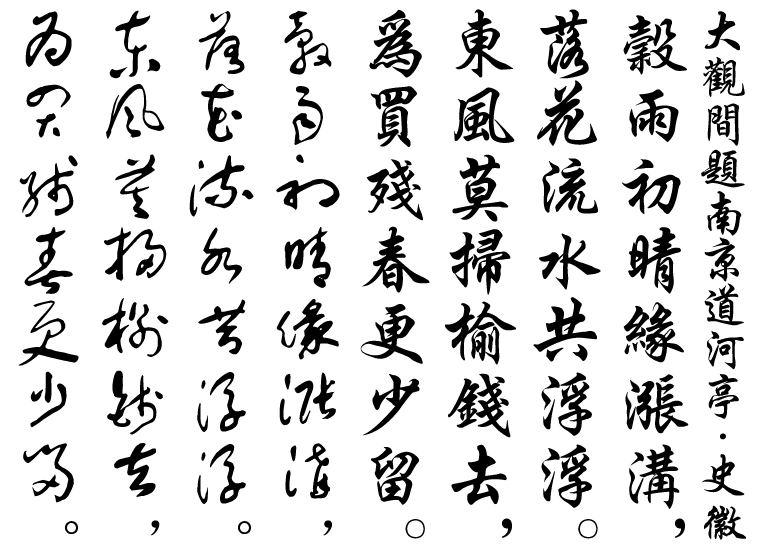 大觀間題南京道河亭·史徽
穀雨初晴緣漲溝，
落花流水共浮浮。
東風莫掃榆錢去，
爲買殘春更少留。
穀雨初晴緣漲溝，
落花流水共浮浮。
東風莫掃榆錢去，
為買殘春更少留。